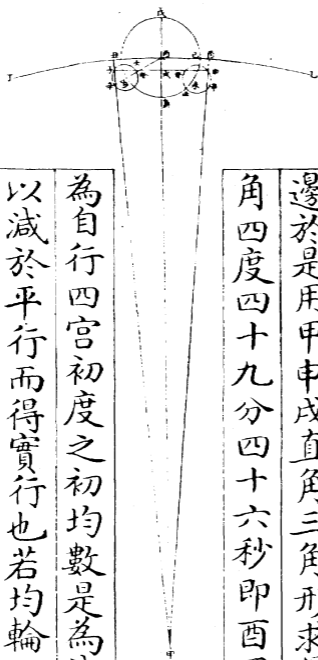 邊於是用甲申戌直角三角形求得
角四度四十九分四十六秒即酉
為自行四宫初度之初均數是為
以減於平行而得實行也若均輪
戊
丁
乙
甲